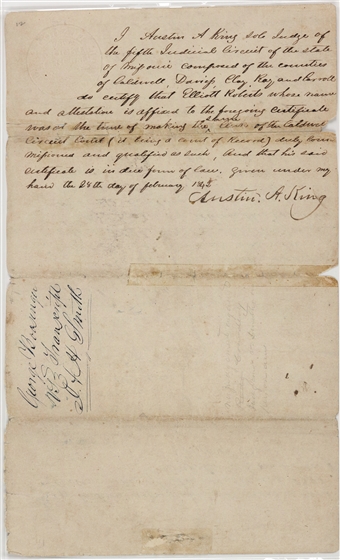 I Austin A King sole Judge of
the fifth Judicial Circuit of the state
of missouri composed of the counties
of Caldwell Daviess Clay Ray, and Carroll
do certify that Elliott Roberts whose name
and attestation is affixed to the foregoing certificate
was at the time of making the same Clerk of the Caldwell
Circuit Court (it being a court of Record) duly
and qualified as such, And that his said
certificate is in due form of law. given under my
hand the 24th day of february
Austin. A. King
George
Transcript
Smith